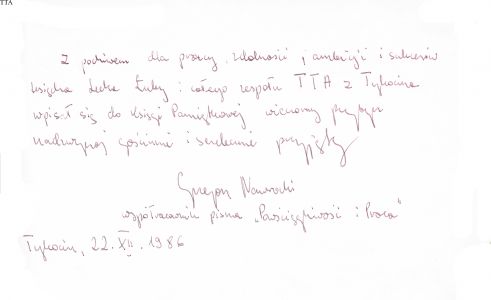 TTA
Z podziwem dla pracy, zdolności, ambicji i sukcesów
księdza Lecha Łuby i całego zespołu TTA z Tykocina
wpisał się do Księgi Pamiątkowej
nadzwyczaj gościnnie i serdecznie przyjęty
Grzegorz Nawrocki
współpracownik pisma „Powściągliwość i Praca"
Tykocin, 22.XII.1986